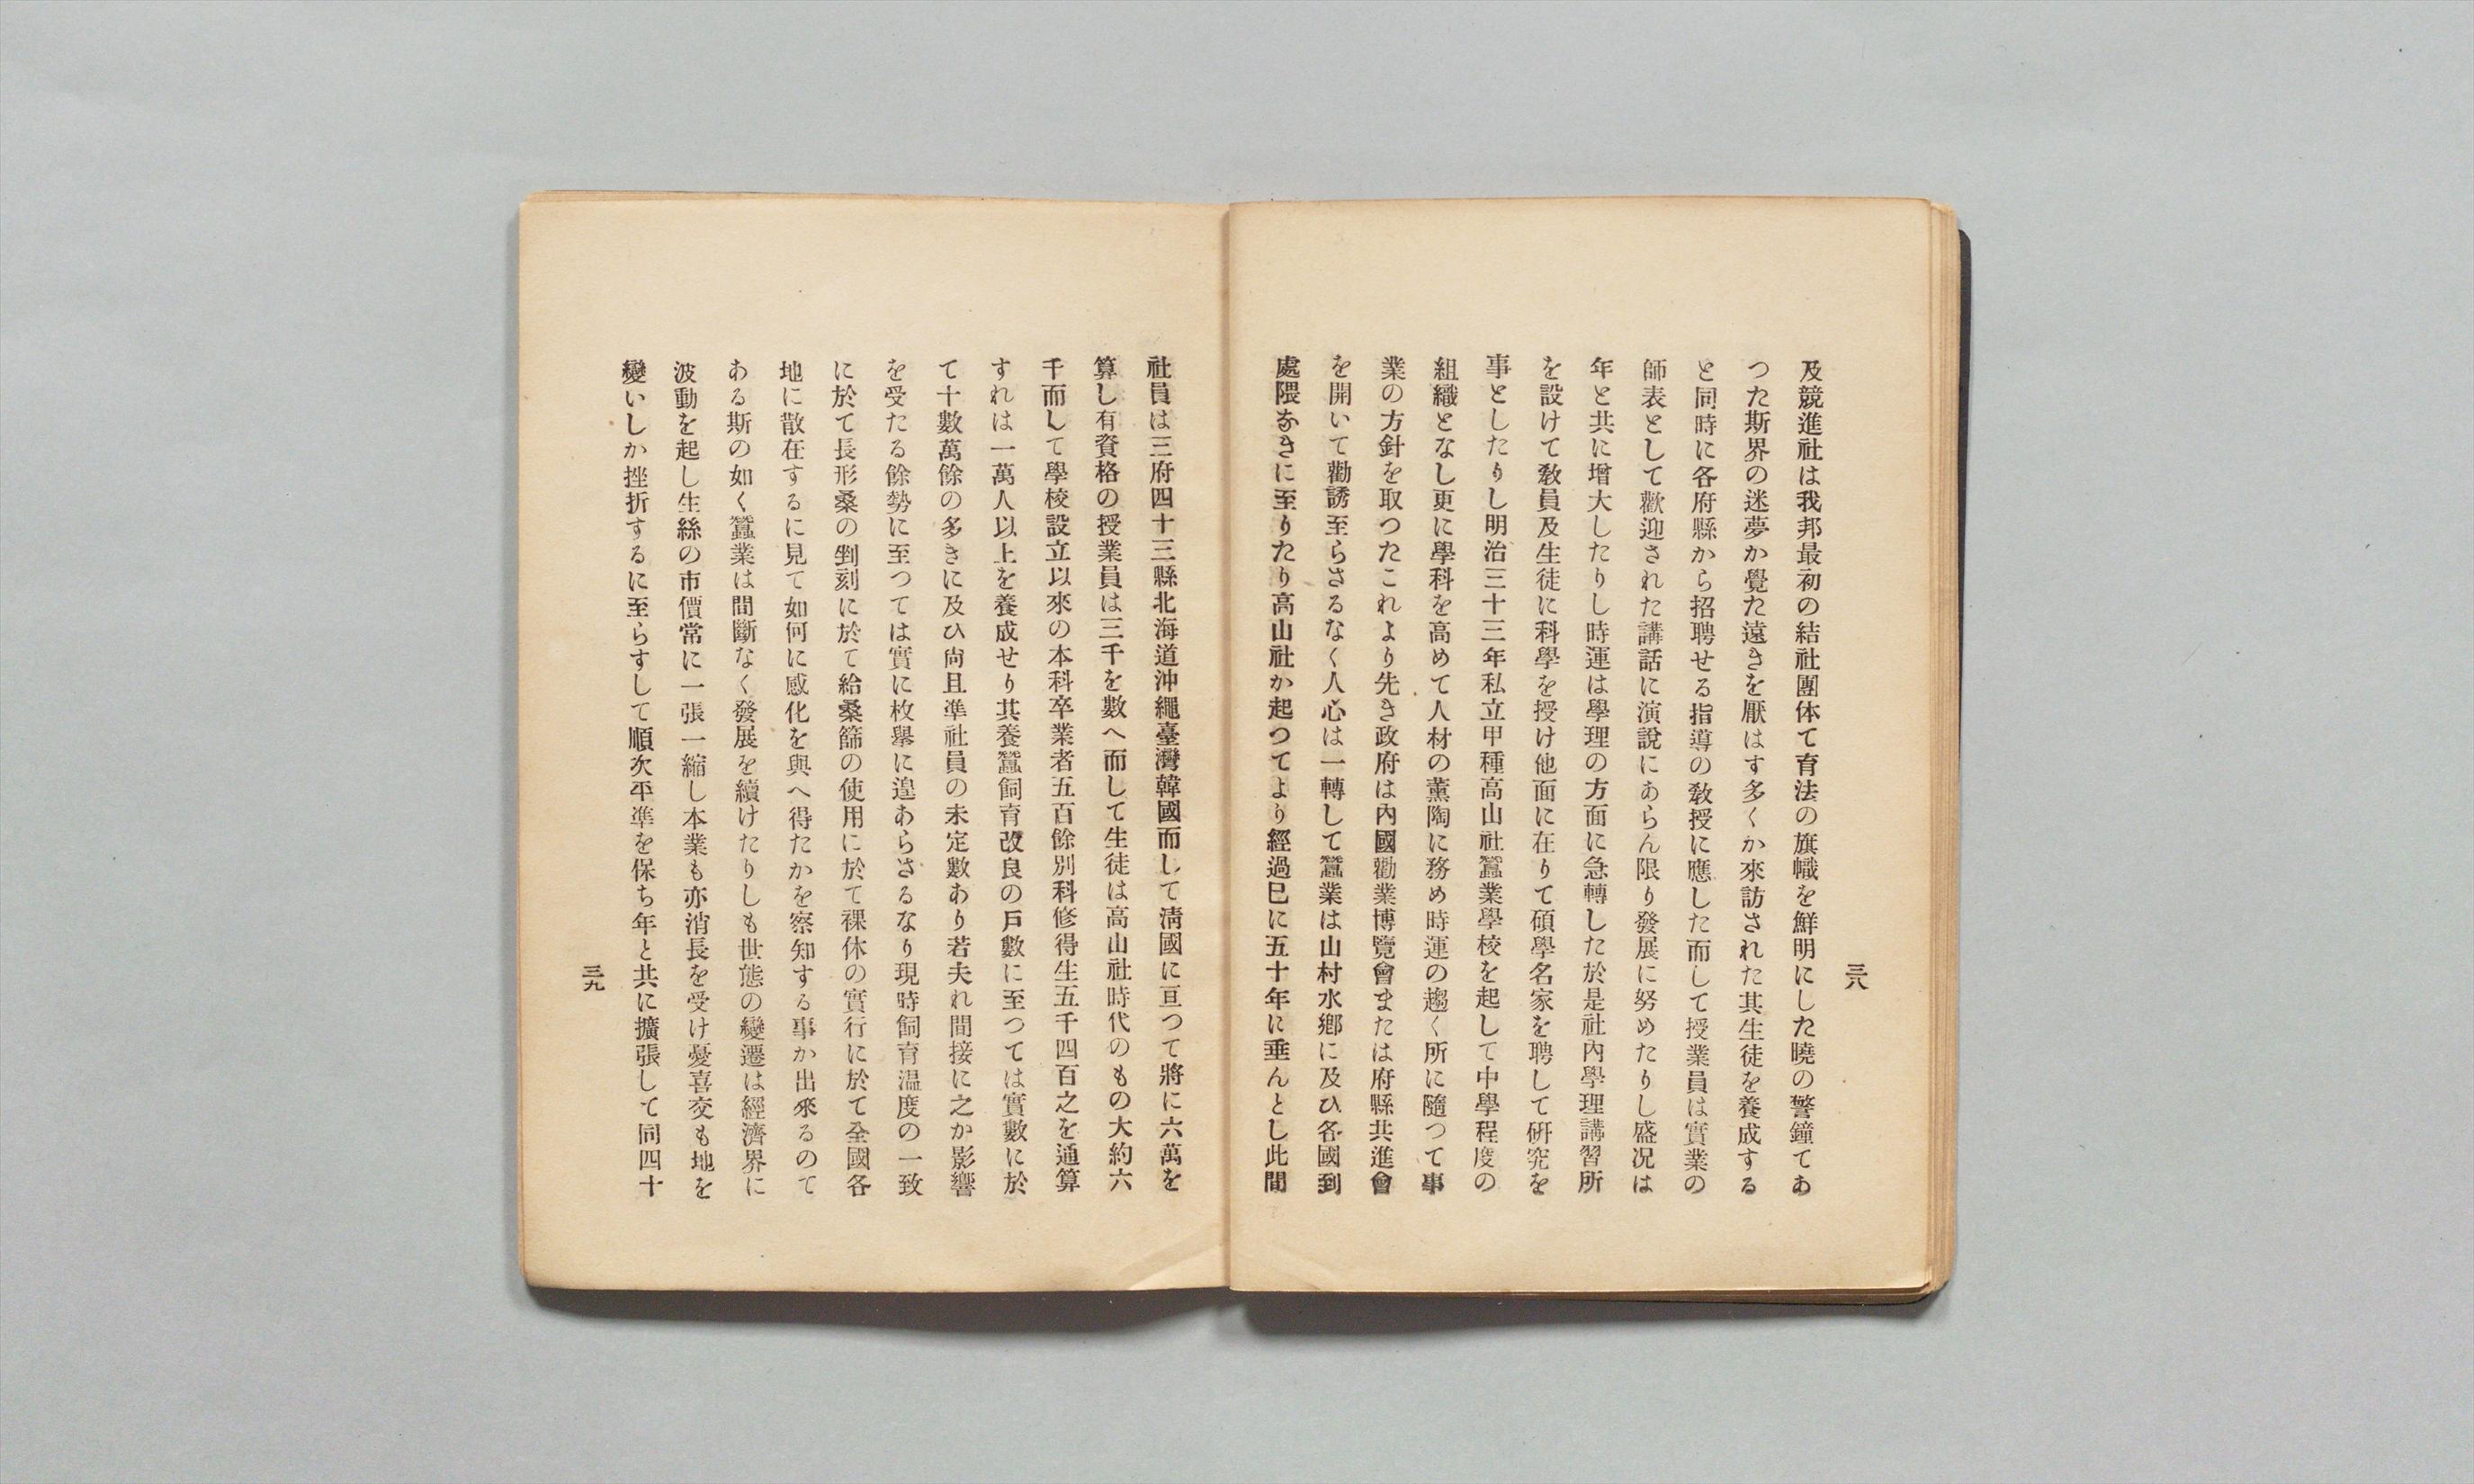 三八
及競進社は我邦最初の結社團体て育法の旗幟を鮮明にした曉の警鐘てあ
つた斯界の迷夢か覺た遠きを厭はす多くか來訪された其生徒を養成する
と同時に各府縣から招聘せる指導の敎授に應した而して授業員は實業の
師表として歡迎された講話に演說にあらん限り發展に努めたりし盛况は
年と共に增大したりし時運は學理の方面に急轉した於是社內學理講習所
を設けて敎員及生徒に科學を授け他面に在りて碩學名家を聘して硏究を
事としたりし明治三十三年私立甲種高山社蠶業學校を起して中學程度の
組織となし更に學科を高めて人材の薰陶に務め時運の趨く所に隨つて事
業の方針を取つたこれより先き政府は內國勸業博覽會または府縣共進會
を開いて勸誘至らさるなく人心は一轉して蠶業は山村水鄕に及ひ各國到
處隈なきに至りたり高山社か起つてより經過巳に五十年に垂んとし此間
社員は三府四十三縣北海道沖繩臺灣韓國而して淸國に亘つて將に六萬を
算し有資格の授業員は三千を數へ而して生徒は高山社時代のもの大約六
千而して學校設立以來の本科卒業者五百餘別科修得生五千四百之を通算
すれは一萬人以上を養成せり其養蠶飼育改良の戶數に至つては實數に於
て十數萬餘の多きに及ひ尙且準社員の未定數あり若夫れ間接に之か影響
を受たる餘勢に至つては實に枚擧に遑あらさるなり現時飼育温度の一致
に於て長形桑の剉刻に於て給桑篩の使用に於て裸休の實行に於て全國各
地に散在するに見て如何に感化を與へ得たかを察知する事か出來るのて
ある斯の如く蠶業は間斷なく發展を續けたりしも世態の變遷は經濟界に
波動を起し生絲の市價常に一張一縮し本業も亦消長を受け憂喜交も地を
變いしか挫折するに至らすして順次平準を保ち年と共に擴張して同四十
三九